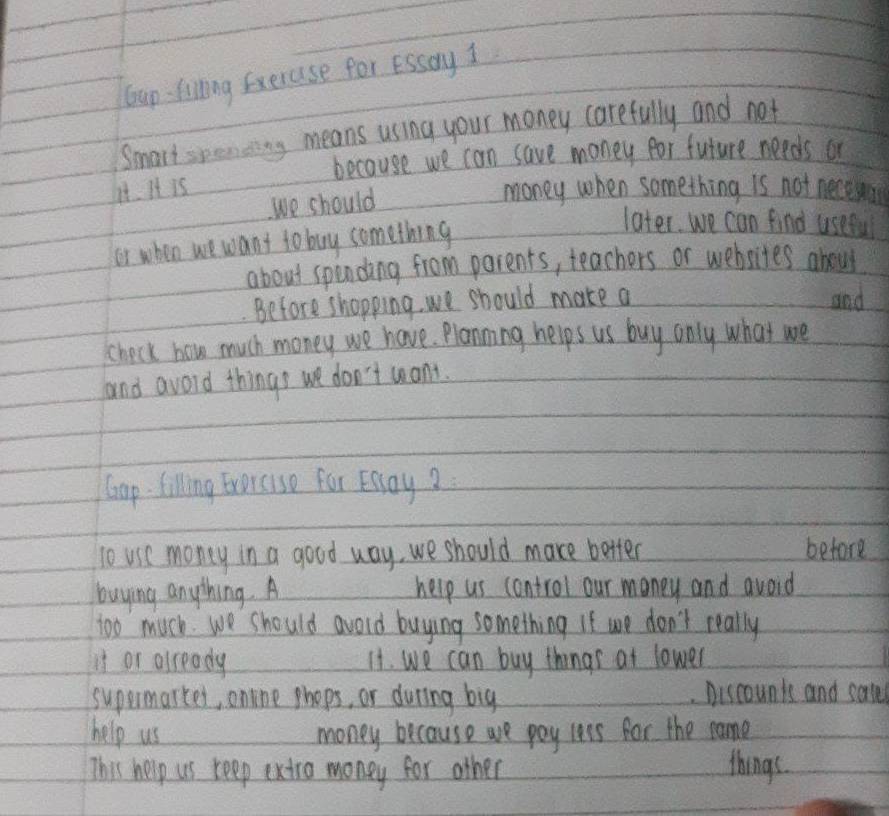 Gap-filling Exercise for Essay 1.
Smart spending means using your money carefully and not
it. It is because we can save money for future needs or
we should money when something is not necessary
or when we want to buy something later. we can find useful
about spending from parents, teachers or websites about
. Before shopping, we should make a and
check how much money we have. Planning helps us buy only what we
and avoid things we don't want.
Gap-filling Exercise for Essay 2:
To use money in a good way, we should make better before
buying anything. A help us control our money and avoid
too much. We should avoid buying something if we don't really
it or already it. We can buy things at lower
supermarket, online shops, or during big . Discounts and sales
help us money because we pay less for the same
This help us keep extra money for other things.